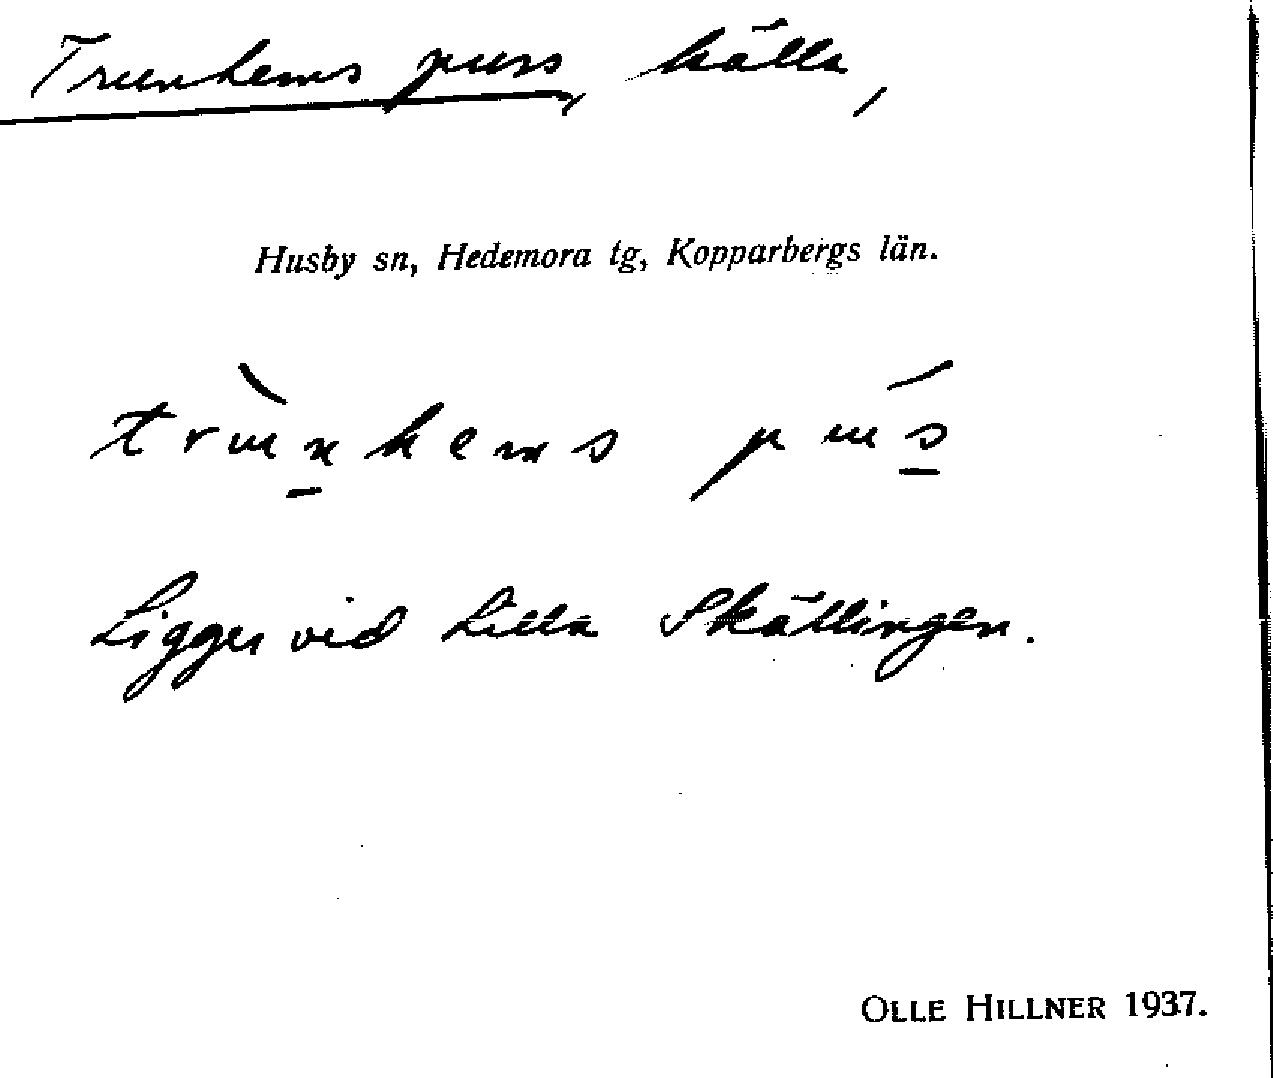 Trunkems puss, källa,
Husby sn, Hedemora tg, Kopparbergs län.
trùnkems pus´
Ligger vid Lilla Skällingen.
OLLE HILLNER 1937.